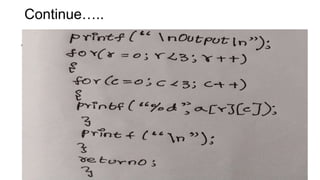 Continue…..
printf (“ \nOutput\n”);
for(r = 0; r<3; r++)
{
for(c = 0; c <3; c++)
{
printf (“%d”, a[r][c]);
}
printf (“\n”);
}
return0;
}